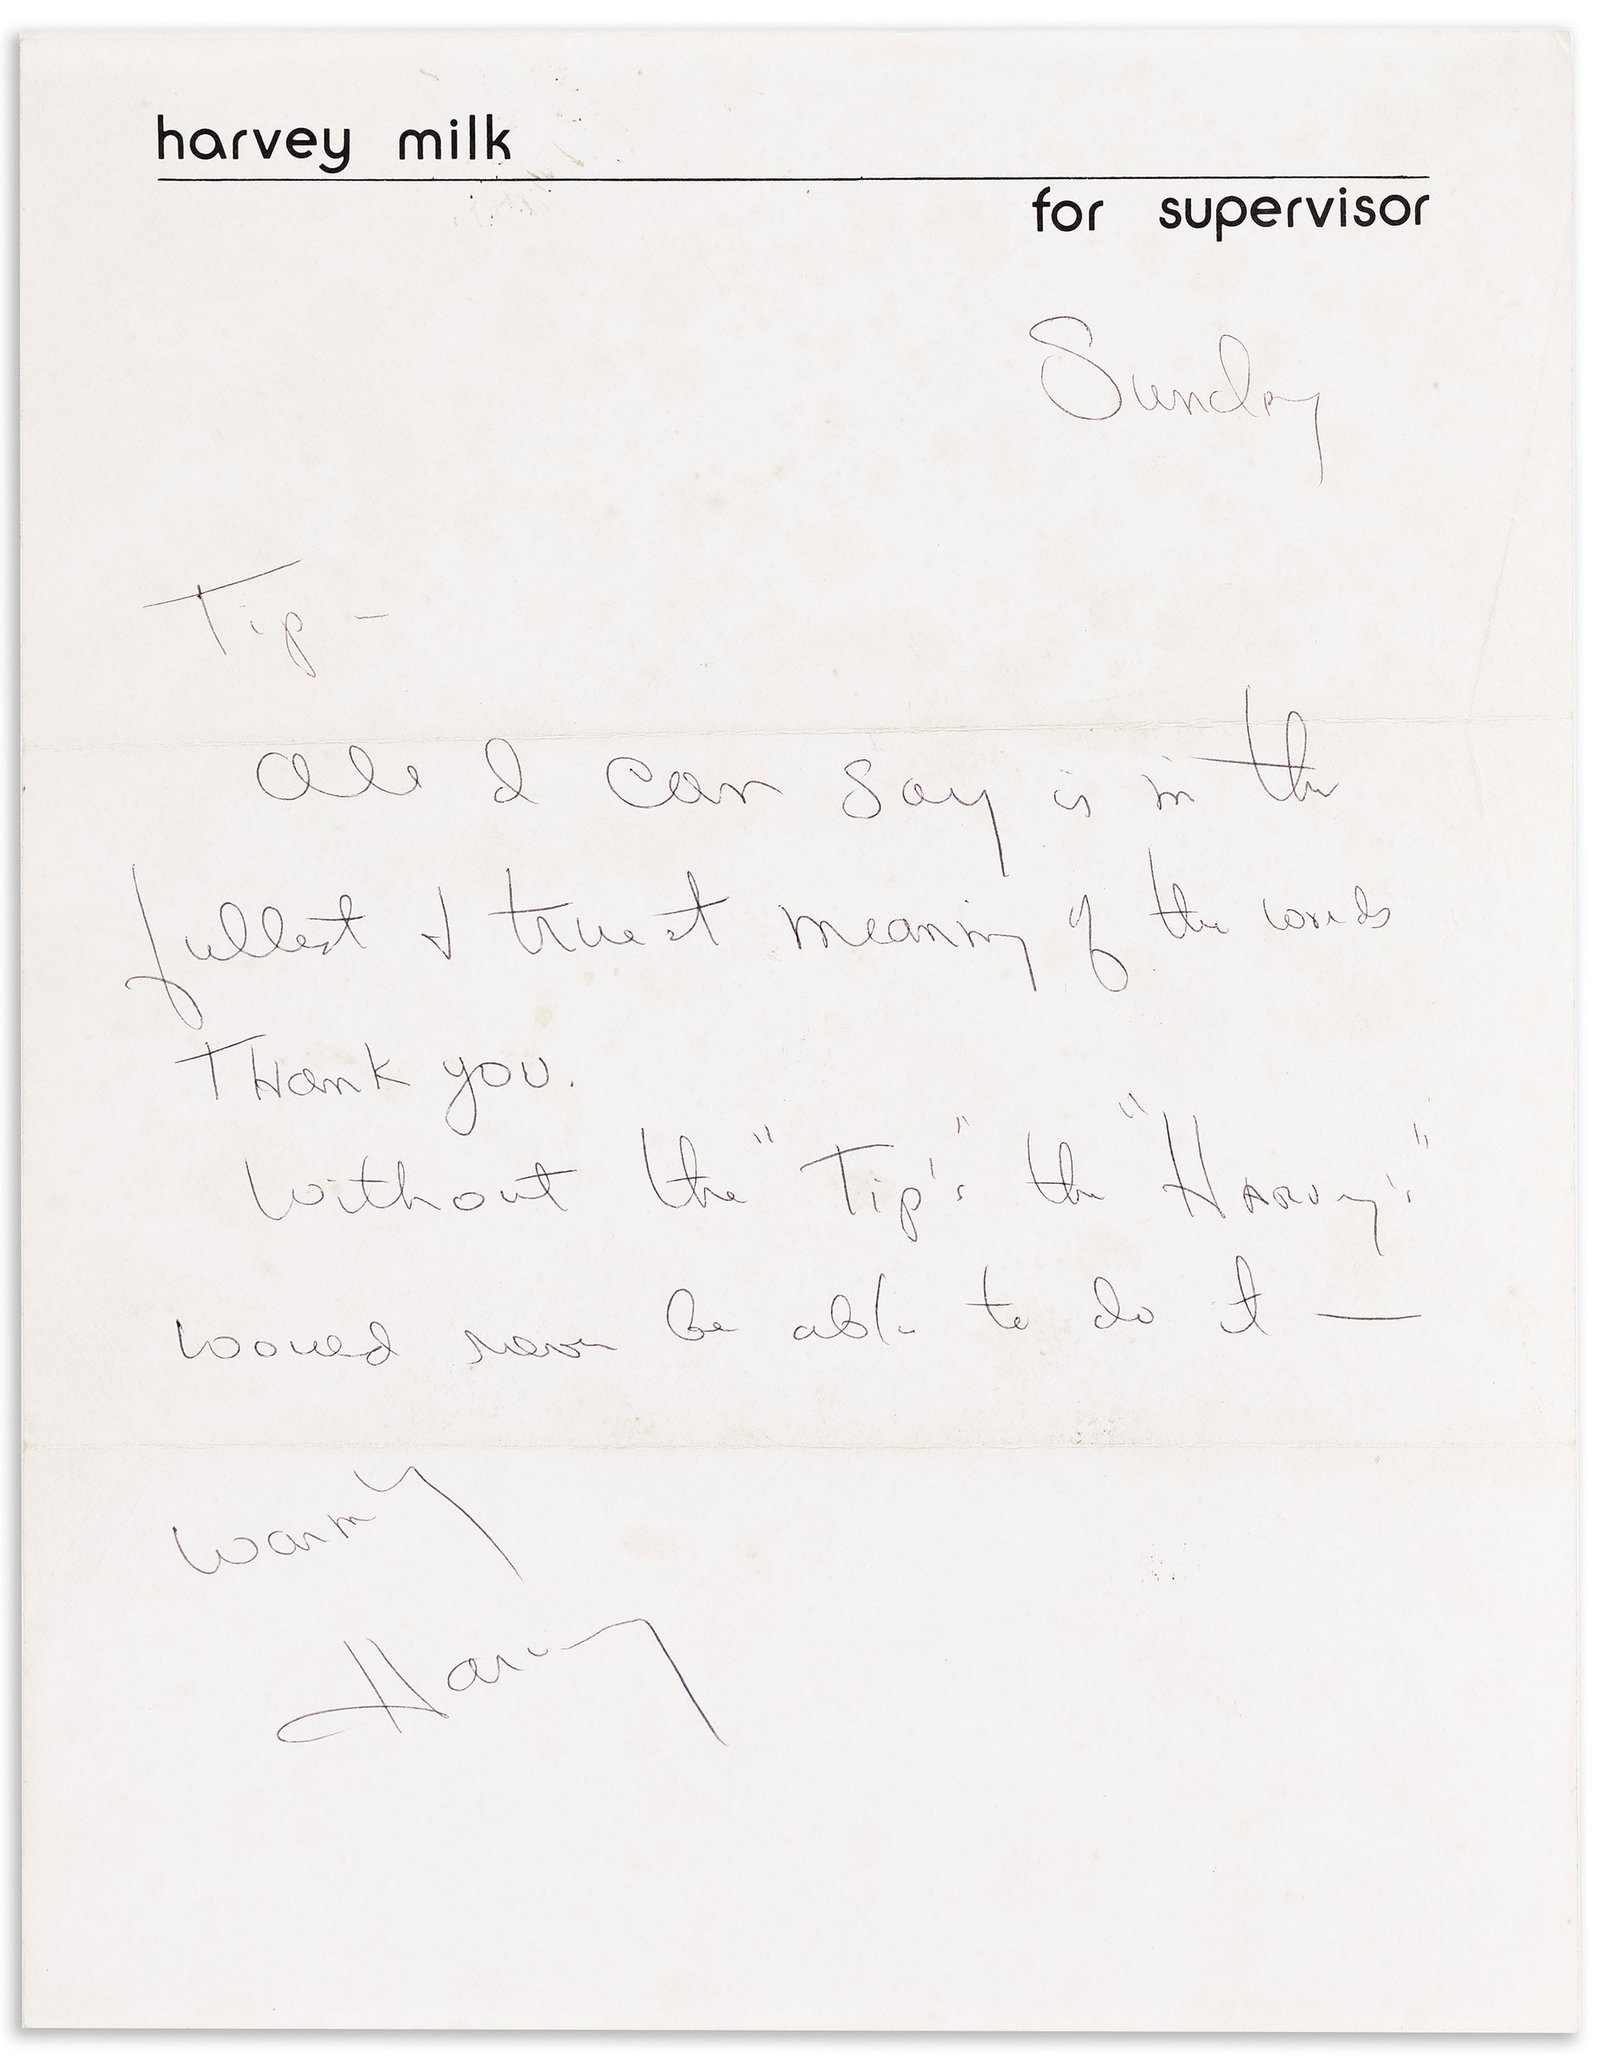 harvey milk
for supervisor
Sunday
Tip –
All I can say is in the
fullest & truest meaning of the words
Thank you.
Without the "Tip's" the "Harvey's"
would never be able to do it —
Warmly
Harvey